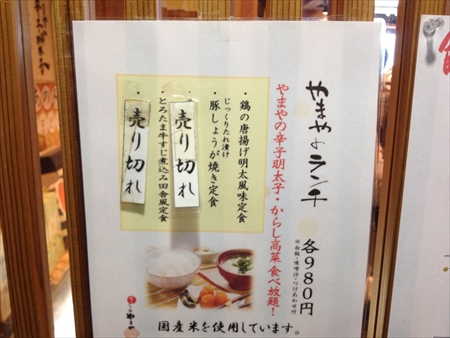 やまやのランチ 各980円
※白飯・味噌汁・つけあわせ付
やまやの辛子明太子・からし高菜 食べ放題!
・鶏の唐揚げ明太風味定食
じっくりたれ漬け
・豚しょうが焼き定食
売り切れ
・とろたま牛すじ煮込み田舎風定食
売り切れ
国産米を使用しています。
やまや